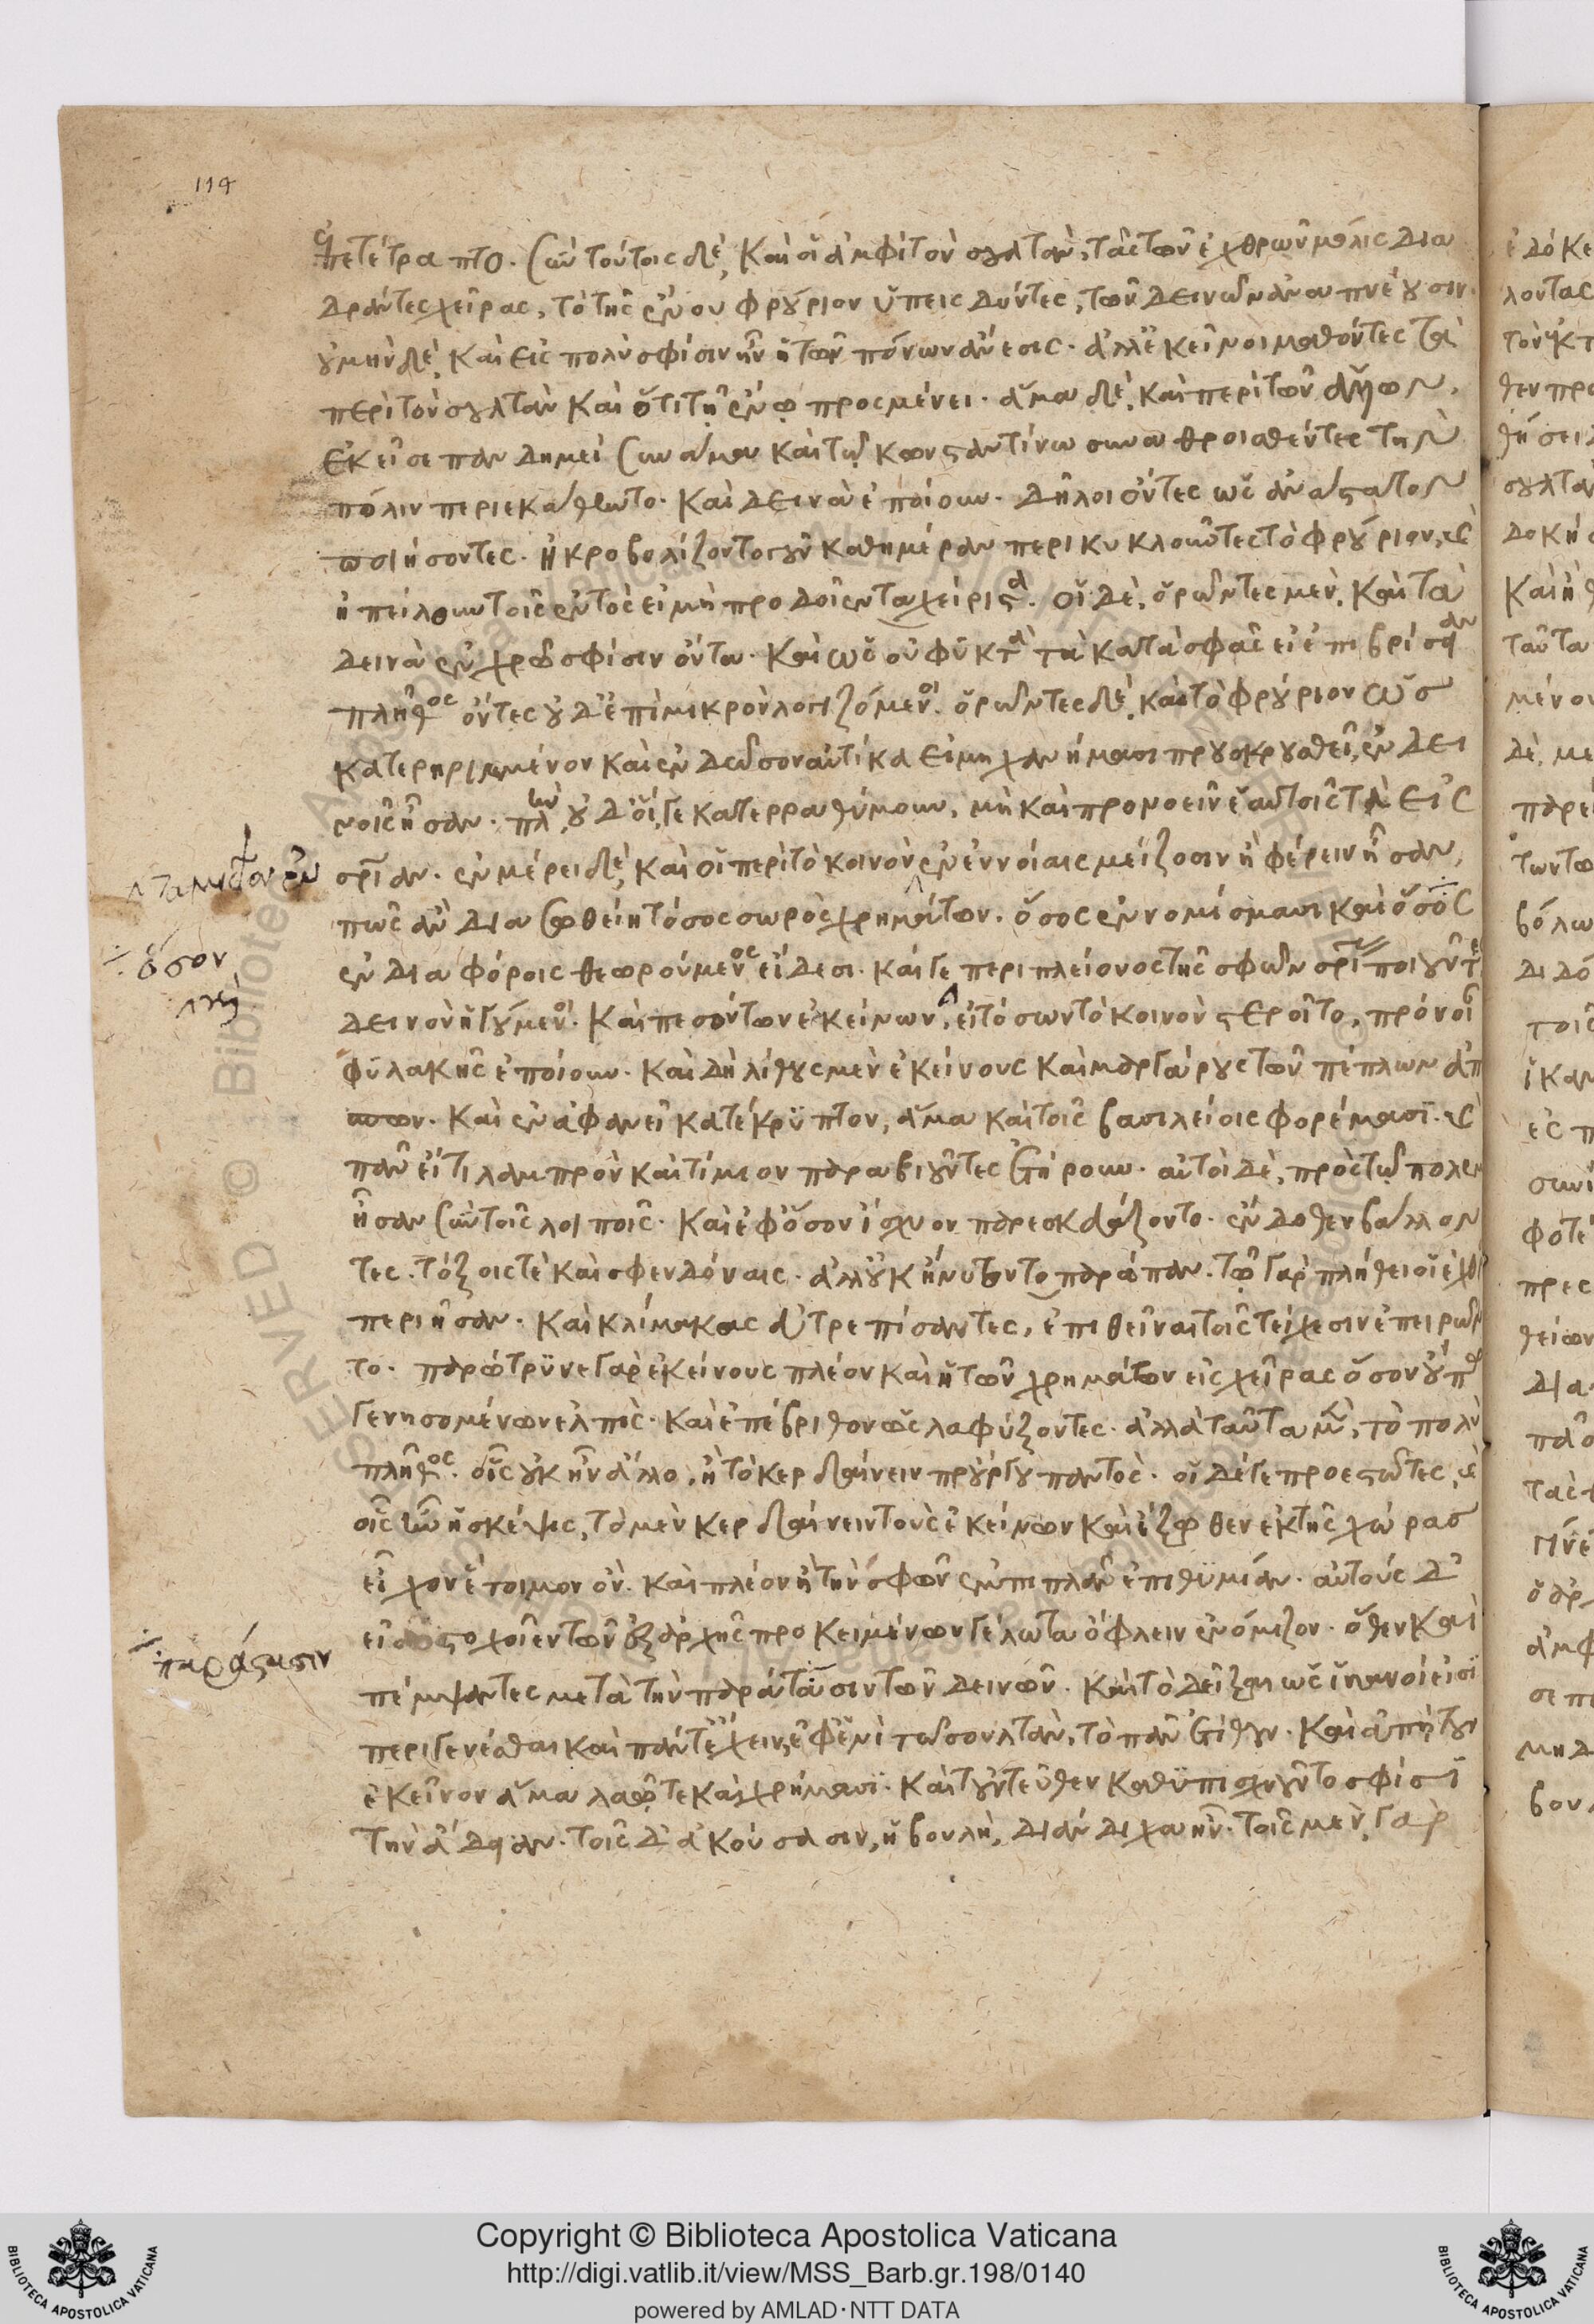 119
ἐπετέτραπτο. σὺν τούτοις δὲ, καὶ οἱ ἀμφὶ τὸν σουλτὰν, τὰς τῶν ἐχθρῶν μόλις δια
δράντες χεῖρας, τὸ τῆς αἴνου φρούριον ὑπεισδύντες, τῶν δεινῶν ἀναπνέουσιν.
οὐ μὴν δὲ, καὶ εἰς πολὺ σφίσιν ἦν ἡ τῶν πόνων ἄνεσις. ἀλλ' ἐκεῖνοι μαθόντες τὰ
περὶ τὸν σουλτὰν καὶ ὅτι τῇ αἴνῳ προσμένει. ἅμα δὲ, καὶ περὶ τῶν ἄλλων,
ἐκεῖσε πανδημεὶ σὺν ἅμα καὶ τῷ κωνσταντίνω συναθροισθέντες τὴν
πόλιν περιεκάθηντο. καὶ δεινὰ ἐποίουν. δῆλοι ὄντες ὡς ἀνάστατον
ποιήσοντες. ἠκροβολίζοντο γοῦν καθημέραν περικυκλοῦντες τὸ φρούριον, καὶ
ἠπείλουν τοῖς ἐντὸς εἰ μὴ προδοῖεν τὰ χείριστα. οἱ δὲ, ὁρῶντες μὲν, καὶ τὰ
δεινὰ ἐν χρῷ σφίσιν ὄντα. καὶ ὡς οὐ φυκτὰ τὰ κατὰ σφᾶς εἰ ἐπιβρίσαν
πλῆθος ὄντες οὐδ' ἐπὶ μικρὸν λογιζόμενοι. ὁρῶντες δὲ, καὶ τὸ φρούριον ὡς
κατερηριμμένον καὶ ἐνδεῶς ὂν αὐτίκα εἰ μηχανήμασι προσκρουσθεῖ, ἐν δει
νοῖς ἦσαν. πλὴν, οὐδ' οἵγε κατερραθύμουν, μὴ καὶ προνοεῖν ἑαυτοῖς τὰ εἰς
σρίαν. ἐν μέρει δὲ, καὶ οἱ περὶ τὸ κοινὸν ἐν ἐννοίαις μείζοσιν ἢ φέρειν ἦσαν,
πῶς ἂν διασωθείη τόσος σωρὸς χρημάτων. ὅσος ἐν νομίσμασι καὶ ὅσος
ἐν διαφόροις θεωρούμενος εἴδεσι. καίγε περὶ πλείονος τῆς σφῶν σρίας ποιοῦντες
δεινὸν ἡγούμενοι. καὶ πεσόντων ἐκείνων, εἰ τόσων τὸ κοινὸν στεροῖτο, πρόνοιαν
φυλακῆς ἐποίουν. καὶ δὴ λίθους μὲν ἐκείνους καὶ μαργάρους τῶν πέπλων ἀπ
καὶ ἐν ἀφανεῖ κατέκρυπτον, ἅμα καὶ τοῖς βασιλείοις φορέμασι. καὶ
πᾶν εἴτι λαμπρὸν καὶ τίμιον παραβιοῦντες ἐτήρουν. αὐτοὶ δὲ, πρὸς τῷ πολεμ
ἦσαν σὺν τοῖς λοιποῖς. καὶ ἐφ' ὅσον ἴσχυον παρεσκευάζοντο. ἔνδοθεν βάλλον
τες. τόξοις τὲ καὶ σφενδόναις. ἀλλ' οὐκ ἠνύτοντο παράπαν. τῷ γὰρ πλήθει οἱ ἐχθροὶ
περιῆσαν. καὶ κλίμακας εὐτρεπίσαντες, ἐπιθεῖναι τοῖς τείχεσιν ἐπειρῶν
το. παρώτρυνε γὰρ ἐκείνους πλέον καὶ ἡ τῶν χρημάτων εἰς χεῖρας ὅσον οὔπω
γενησομένων ἐλπὶς. καὶ ἐπέβριθον ὡς λαφύξοντες. ἀλλὰ ταῦτα μὲν, τὸ πολὺ
πλῆθος. οἷς οὐκ ἦν ἄλλο, ἢ τὸ κερδαίνειν προὔργου παντὸς. οἱ δέγε προεστῶτες, καὶ
οἷς ἦν ἡ σκέψις, τὸ μὲν κερδαίνειν τοὺς ἐκείνων καὶ ἔξωθεν ἐκ τῆς χώρας
εἶχον ἕτοιμον ὂν. καὶ πλέον ἢ τὴν σφῶν ἐμπιπλᾶν ἐπιθυμίαν. αὐτοὺς δ'
εἰ ἀστοχοῖεν τῶν ἐξαρχῆς προκειμένων γέλωτα ὀφλεῖν ἐνόμιζον. ὅθεν καὶ
πέμψαντες μετὰ τὴν παράτασιν τῶν δεινῶν. καὶ τὸ δεῖξαι ὡς ἱκανοί εἰσὶ
περιγενέσθαι καὶ πάντ' ἔχειν, ἐφ' ἑνὶ τῷ σουλτὰν, τὸ πᾶν ἐτίθουν. καὶ ἀπῄτουν
ἐκεῖνον ἅμα λαῷ τε καὶ χρήμασι. καὶ τοὐντεῦθεν καθυπισχνοῦντο σφίσι
τὴν ἄδειαν. τοῖς δ' ἀκούσασιν, ἡ βουλὴ, διάνδιχα ἦν. τοῖς μὲν γὰρ
ὅσον
παράστασιν
Copyright © Biblioteca Apostolica Vaticana
http://digi.vatlib.it/view/MSS_Barb.gr.198/0140
powered by AMLAD·NTT DATA
BIBLIOTECA APOSTOLICA VATICANA
BIBLIOTECA APOSTOLICA VATICANA